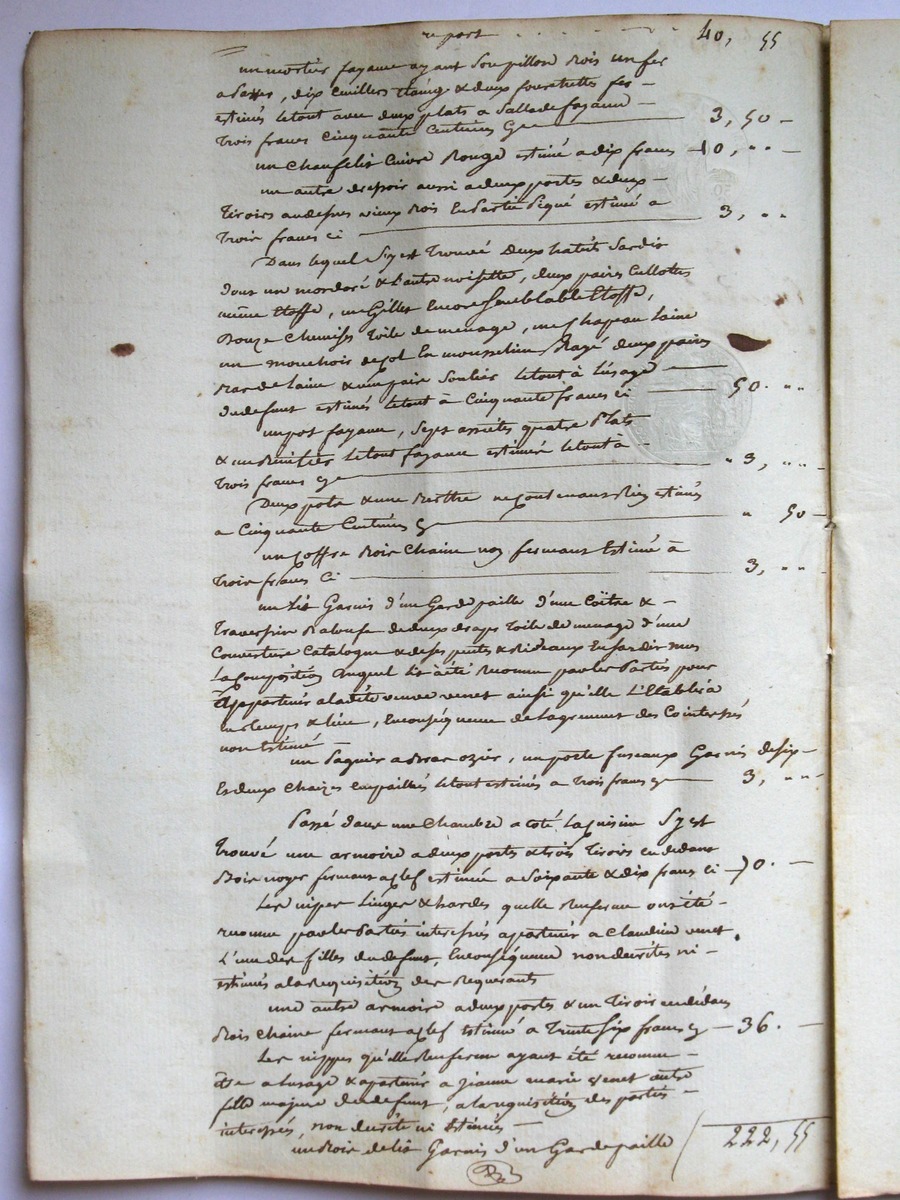 report . . . . . . 40, 55
un mortier fayance ayant son pillon Bois un fer
a passer, dix cuilliers Etaing & deux fourchettes fer
estimés letout avec deux plats a Sallade fayance
trois francs cinquante Centimes Cy 3, 50
un Chaufelit Cuivre Rouge estimé a dix francs 10, " "
un autre drepoir aussi adeux portes & deux
tiroirs audessus vieux Bois En partie Piqué estimé a
trois francs ci 3, " "
Dans lequel Sy est trouvé Deux habits Sardis
dont un mordoré & l'autre noisette, deux paires Cullottes
même Etoffe, un Gillet Encore Semblable Etoffe,
Douze Chemises toile de menage, un Chapeau laine
un mouchoir de col En mousseline Rayé deux paires
Bas de laine & une paire Souliers letout à l'usage
du defunt estimés letout à Cinquante francs ci 50. " "
un pot fayance, Sept assiettes quatre Plats
& un letout fayance estimés letout à
trois francs cy " 3, " "
Deux pots & une ne contenants Rien estimés
a Cinquante Centimes Cy " 50
un Coffre Bois Chaine non fermant Estimé à
trois francs Ci 3, " "
un Lit Garnis d'un Gardepaille d'une Coitre &
traversin Baloufe de deux draps toile de menage d'une
Couverture Catalogne & de ses pents & Rideaux En Sardis
La Composition duquel lit à été Reconnu par les Parties pour
appartenir aladite veuve venet ainsi qu'elle l'Etablira
en temps & lieu, En conséquence de lagrement des Cointerssés
non Estimé
un Paguier a Bras ozier, un porte fuseaux Garnis de six
Et deux Chaizes empaillés letout estimés a trois francs cy 3, " "
Passé dans une Chambre a coté La Cuisine Sy est
trouvé une armoire a deux portes & trois tiroirs en dedans
Bois noyer fermant a clef estimée a Soixante & dix francs ci 70.
Les nipes Linges & hardes quelle Renferme ont été
reconnu par les Parties interessés apartenir a Claudine venet
L'une des filles du defunt, En conséquence non decrites ni
estimés ala Requisition des Requerants
une autre armoire a deux portes & un tiroir en dedans
Bois chaine fermant a clef Estimée a trente six francs cy 36.
Les nippes qu'elle Renferme ayant été reconnu
être a l'usage & apartenir a Jeanne marie venet autre
fille majeure du defunt, a la requisition des parties
interessés, non decrite ni Estimées
un Bois de lit Garnis d'un Gardepaille 222, 55